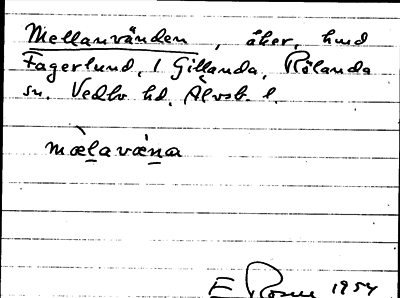 Mellanvänden, åker, hmd
Fagerlund, 1 Gillanda, Rölanda
sn. Vedbo hd, Älvsb. l.
mæ̀lavæṇa
E 1954